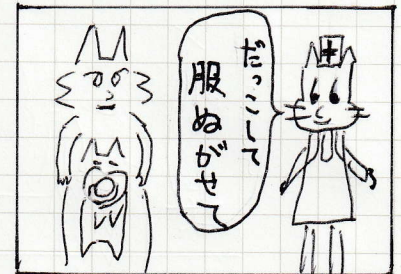 だっこして
服ぬがせて